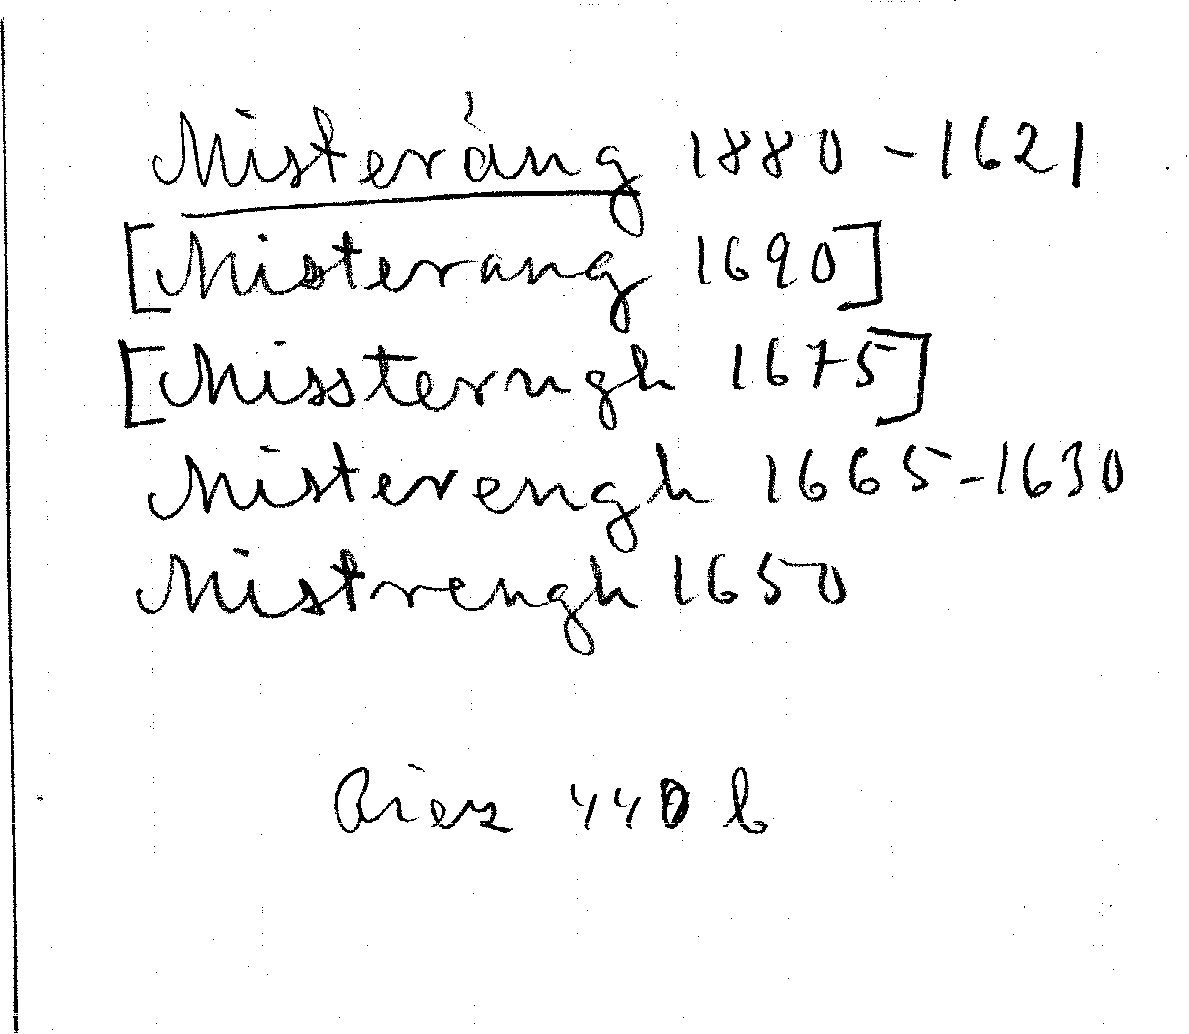 Misteräng 1880 - 1621
[Misterang 1690]
[Missterngh 1675]
Misterengh 1665-1630
Mistrengh 1650
440 b